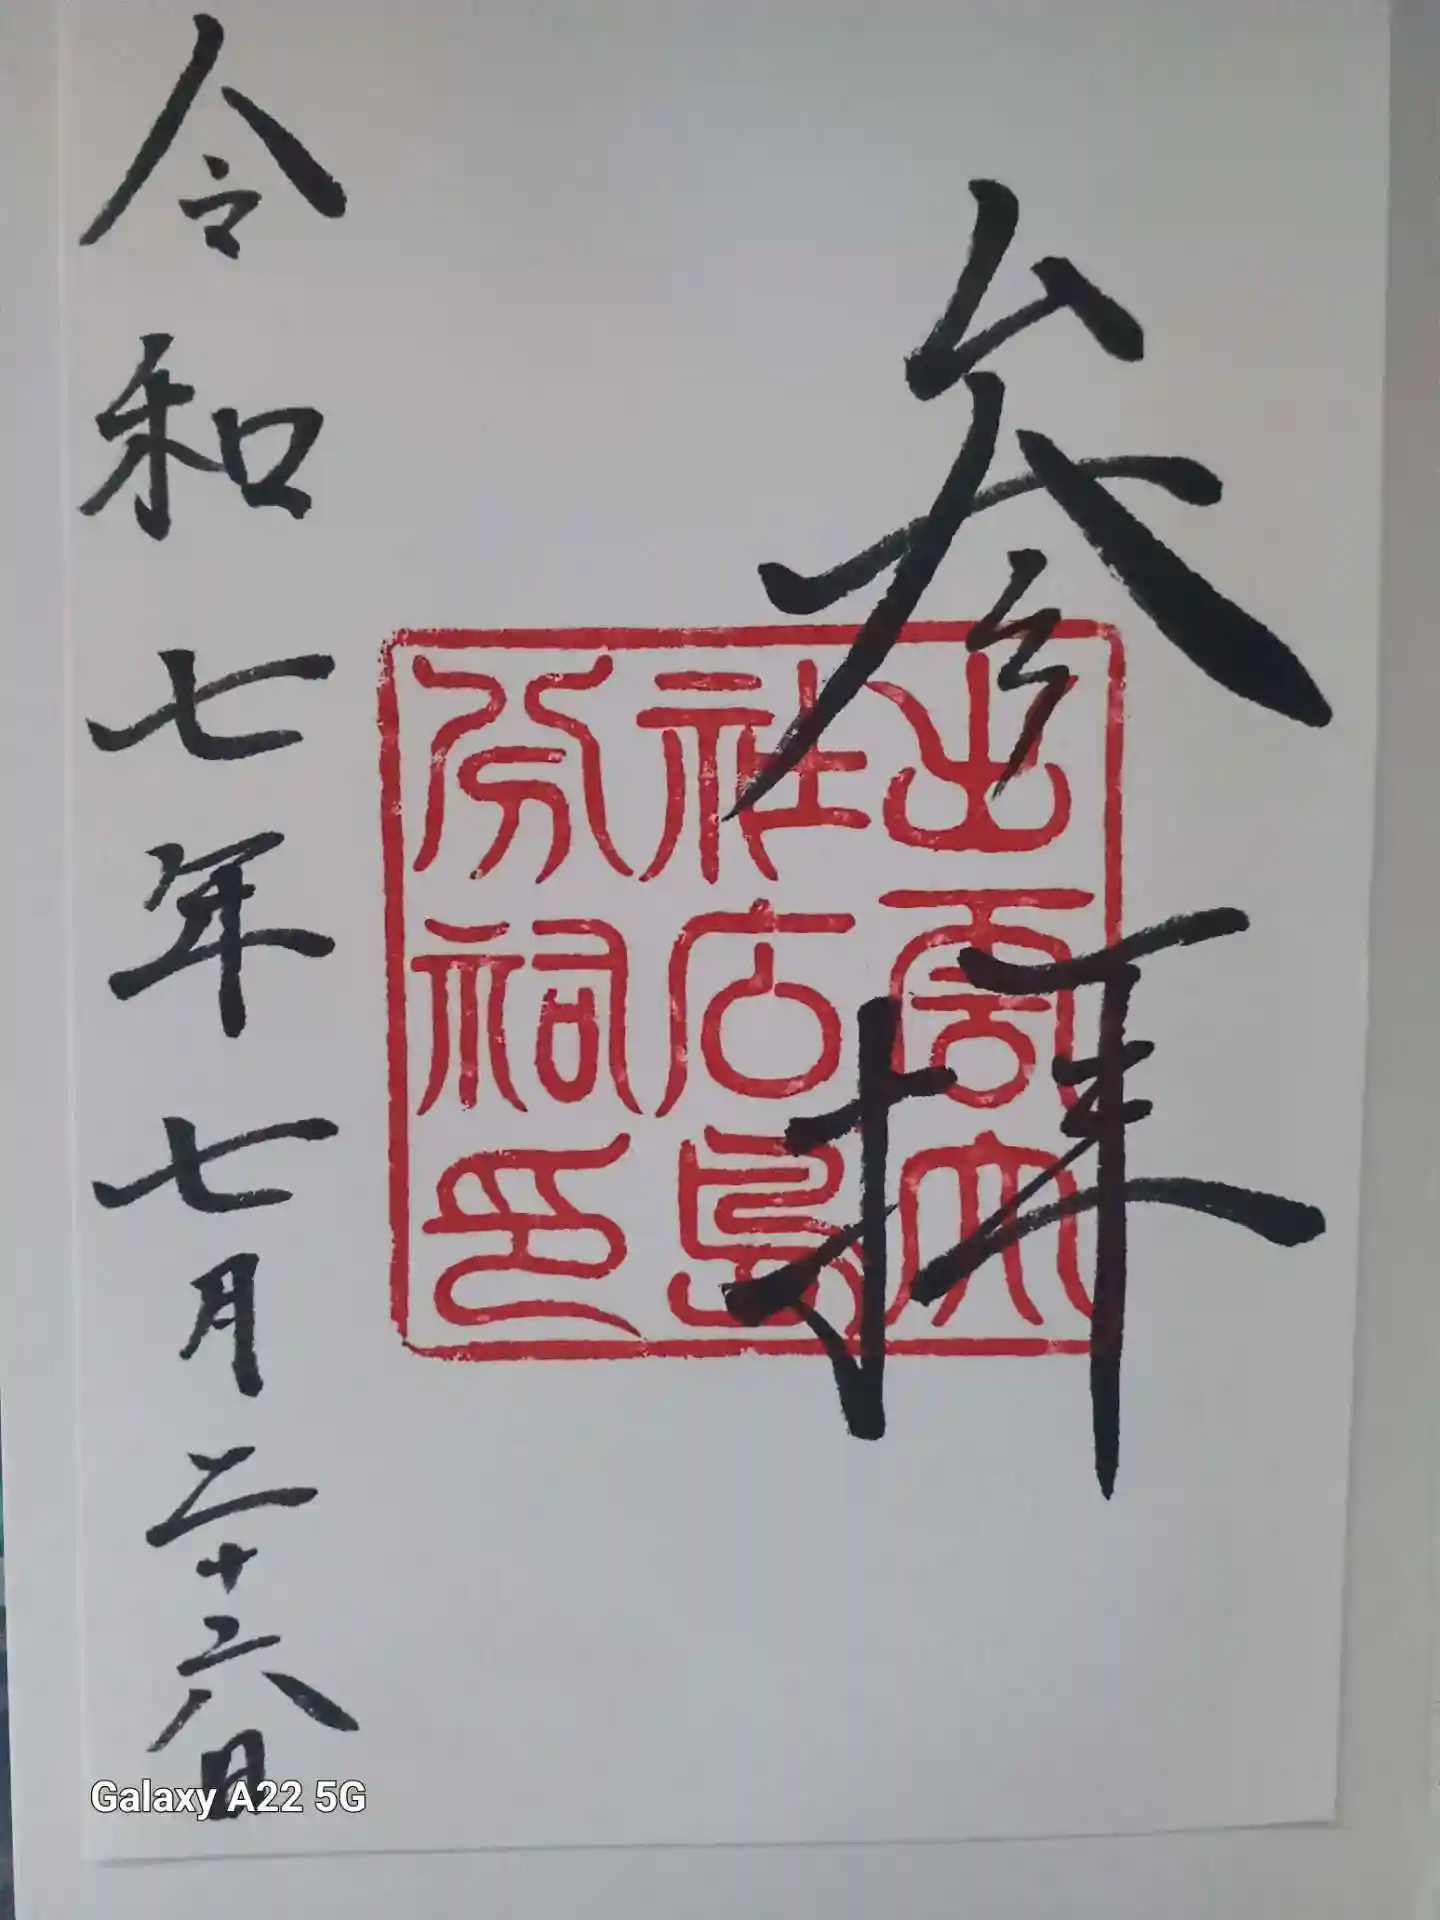 参拝
出雲大
社石島
分祠印
令和七年七月二十六日
Galaxy A22 5G